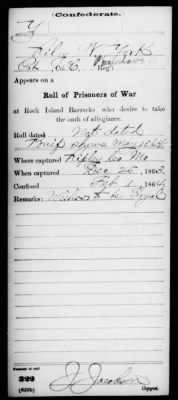 Confederate.
Y
Riley W. Yorks
Co. 6
Reg't
Appears on a
Roll of Prisoners of War
at Rock Island Barracks who desire to take
the oath of allegiance.
Roll dated Not dated
May 15 64
Where captured Ripley Co Mo
When captured Dec 25, 1863
Confined 1, 1864
Remarks: to be loyal
Number of roll
322
J. Jacobson
Copyist.